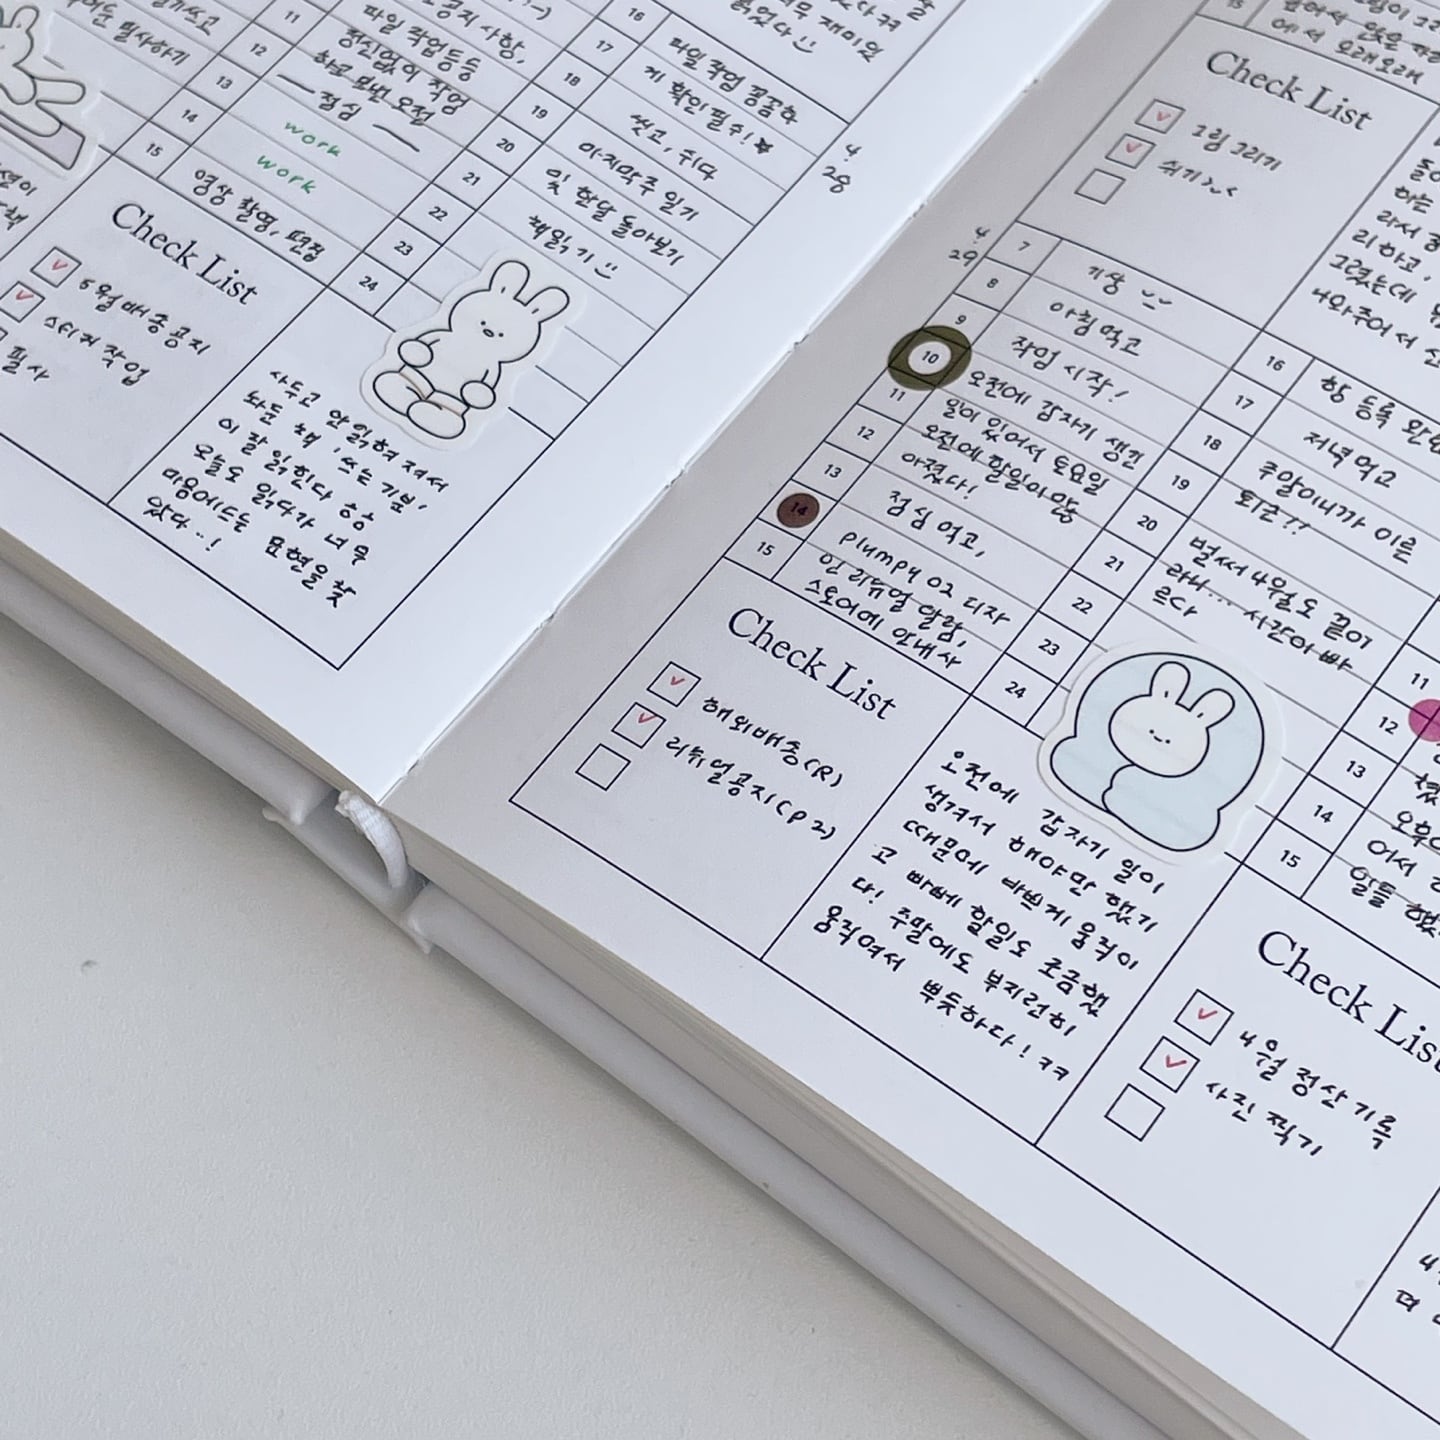 필사하기
11
12
13
14
15
파일 작업등등
정신없이 작업
하고 보번 오전
점심
work
work
영상 촬영, 편집
16
17
18
19
20
21
22
23
24
파일 작업 꼼꼼하
게 확인 필수!
씻고, 쉬다
마지막주 일기
및 한달 돌아보기
책읽기
Check List
5월 배송공지
스티커 작업
필사
사두고 안 읽혀져서
놔둔 책, '쓰는 기분'
이 잘 읽힌다
오늘도 읽다가 너무
마음에드는 표현을 찾
았다..!
4
28
15
에서 오래오래
Check List
그림 그리기
쉬기
4
29
7
8
9
10
11
12
13
14
15
기상
아침먹고
작업 시작!
오전에 갑자기 생긴
일이 있어서 토요일
오전에 할일이 많
아졌다!
점심 먹고,
plumpy 02 디자
인 리뉴얼 알람,
스토어에 안내사
16
17
18
19
20
21
22
23
24
항 등록 완
저녁먹고
주말이니까 이른
퇴근!!
벌써 4월도 끝이
라니... 시간이 빠
르다
Check List
해외배송(R)
리뉴얼공지(P2)
오전에 갑자기 일이
생겨서 해야만 했기
때문에 바쁘게 움직이
고 빠삐 할일도 조금했
다! 주말에도 부지런히
움직여서 뿌듯하다! ㅋㅋ
11
12
13
14
15
Check List
4월 정산 기록
사진 찍기